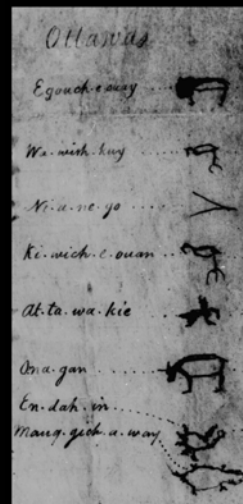 Ottawas
Egouch-e-ouay ....
We.wish.kuy ......
Ni.a.ne.go .....
Ki.wich.e.ouan ....
At.ta.wa.kie ....
Ona.gan ........
En.dah.in.......
Mauq.gich.a.way